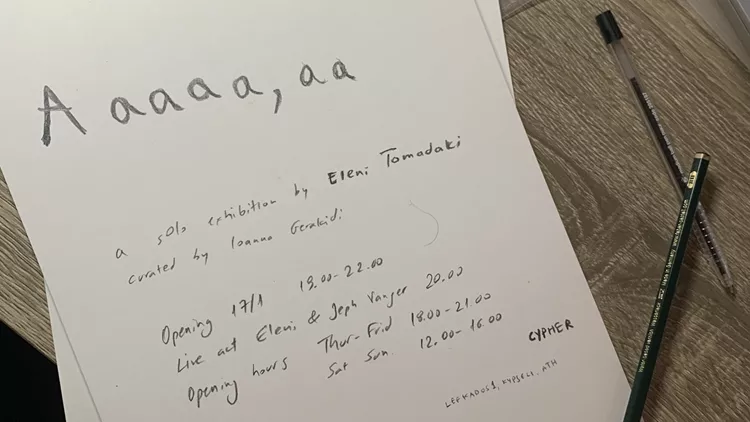 A aaaa, aa
a solo exhibition by Eleni Tomadaki
curated by Ioanna Gerakidi
Opening 17/1 19.00-22.00
Live act Eleni & Jeph Vanger 20.00
Opening hours Thur-Frid 18.00-21.00
Sat Sun. 12.00-16.00
CYPHER
LEFKADOS 1, KYPSELI, ATH